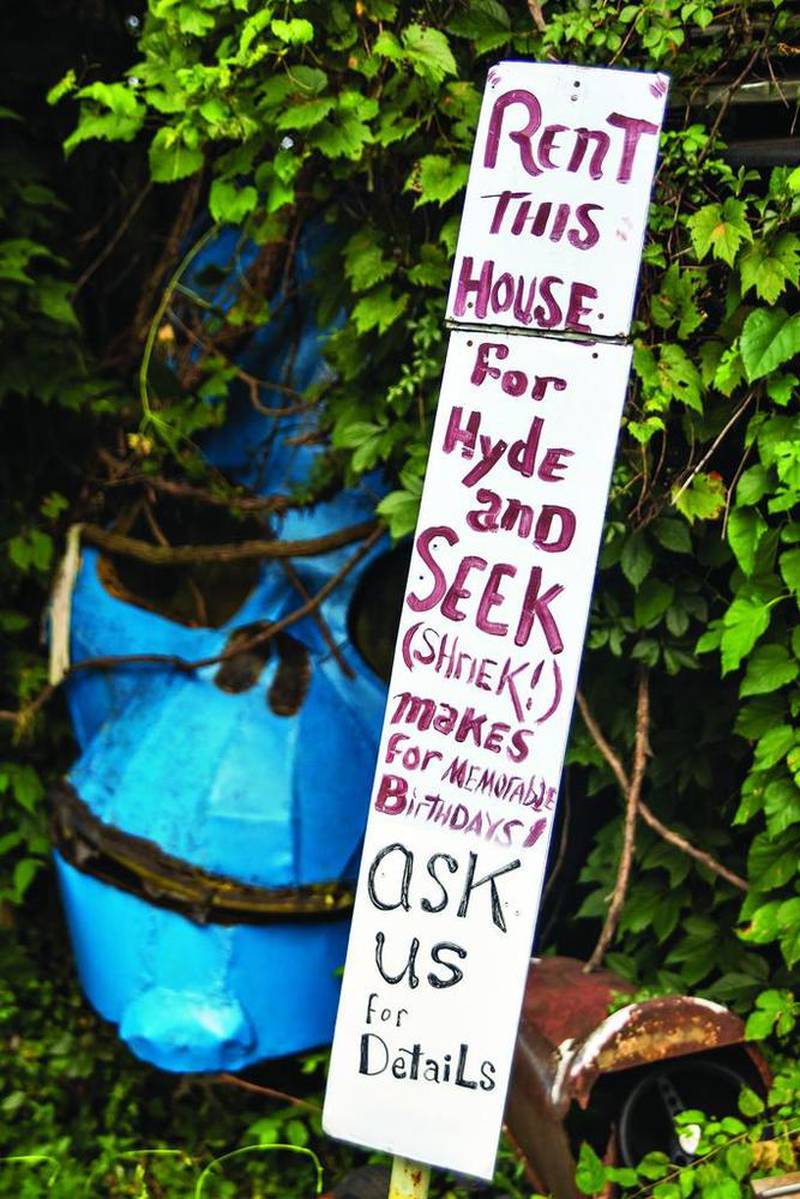 RenT
THIS
HOUSE
For
Hyde
anD
SEEK
(SHriEK!)
makEs
For MEMORAblE
BirTHDAYS!
asK
us
For
DetaiLs